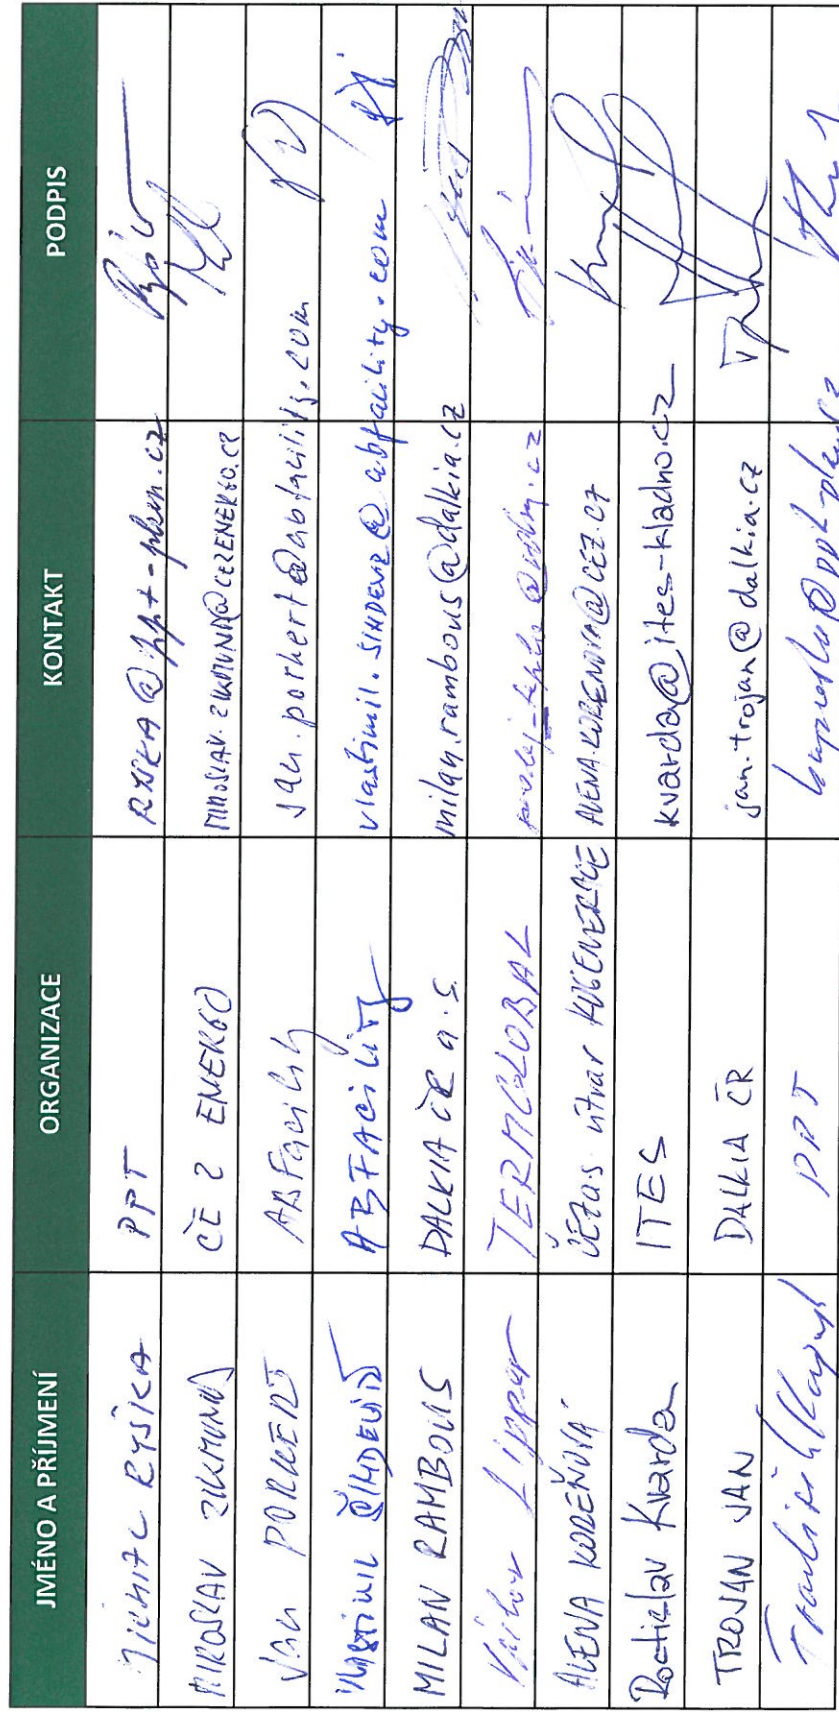 JMÉNO A PŘÍJMENÍ ORGANIZACE KONTAKT PODPIS
MICHAL RYŠKA PPT RYSKA@ppt-plzen.cz
MIROSLAV ZIKMUND ČEZ ENERGO MIROSLAV.ZIKMUND@CEZENERGO.CZ
Jan PORKERT ABFacility jan.porkert@abfacility.com
VLASTIMIL ABFACILITY vlastimil.SIMDEVIC@abfacility.com
MILAN RAMBOUS DALKIA ČR a.s. milan.rambous@dalkia.cz
Lipper TERMGLOBAL
ALENA KOŘENOVÁ ČEZ a.s. útvar KOGENERACE ALENA.KORENOVA@CEZ.CZ
Rostislav Kvarda ITES kvarda@ites-kladno.cz
TROJAN JAN DALKIA ČR jan.trojan@dalkia.cz
PPT